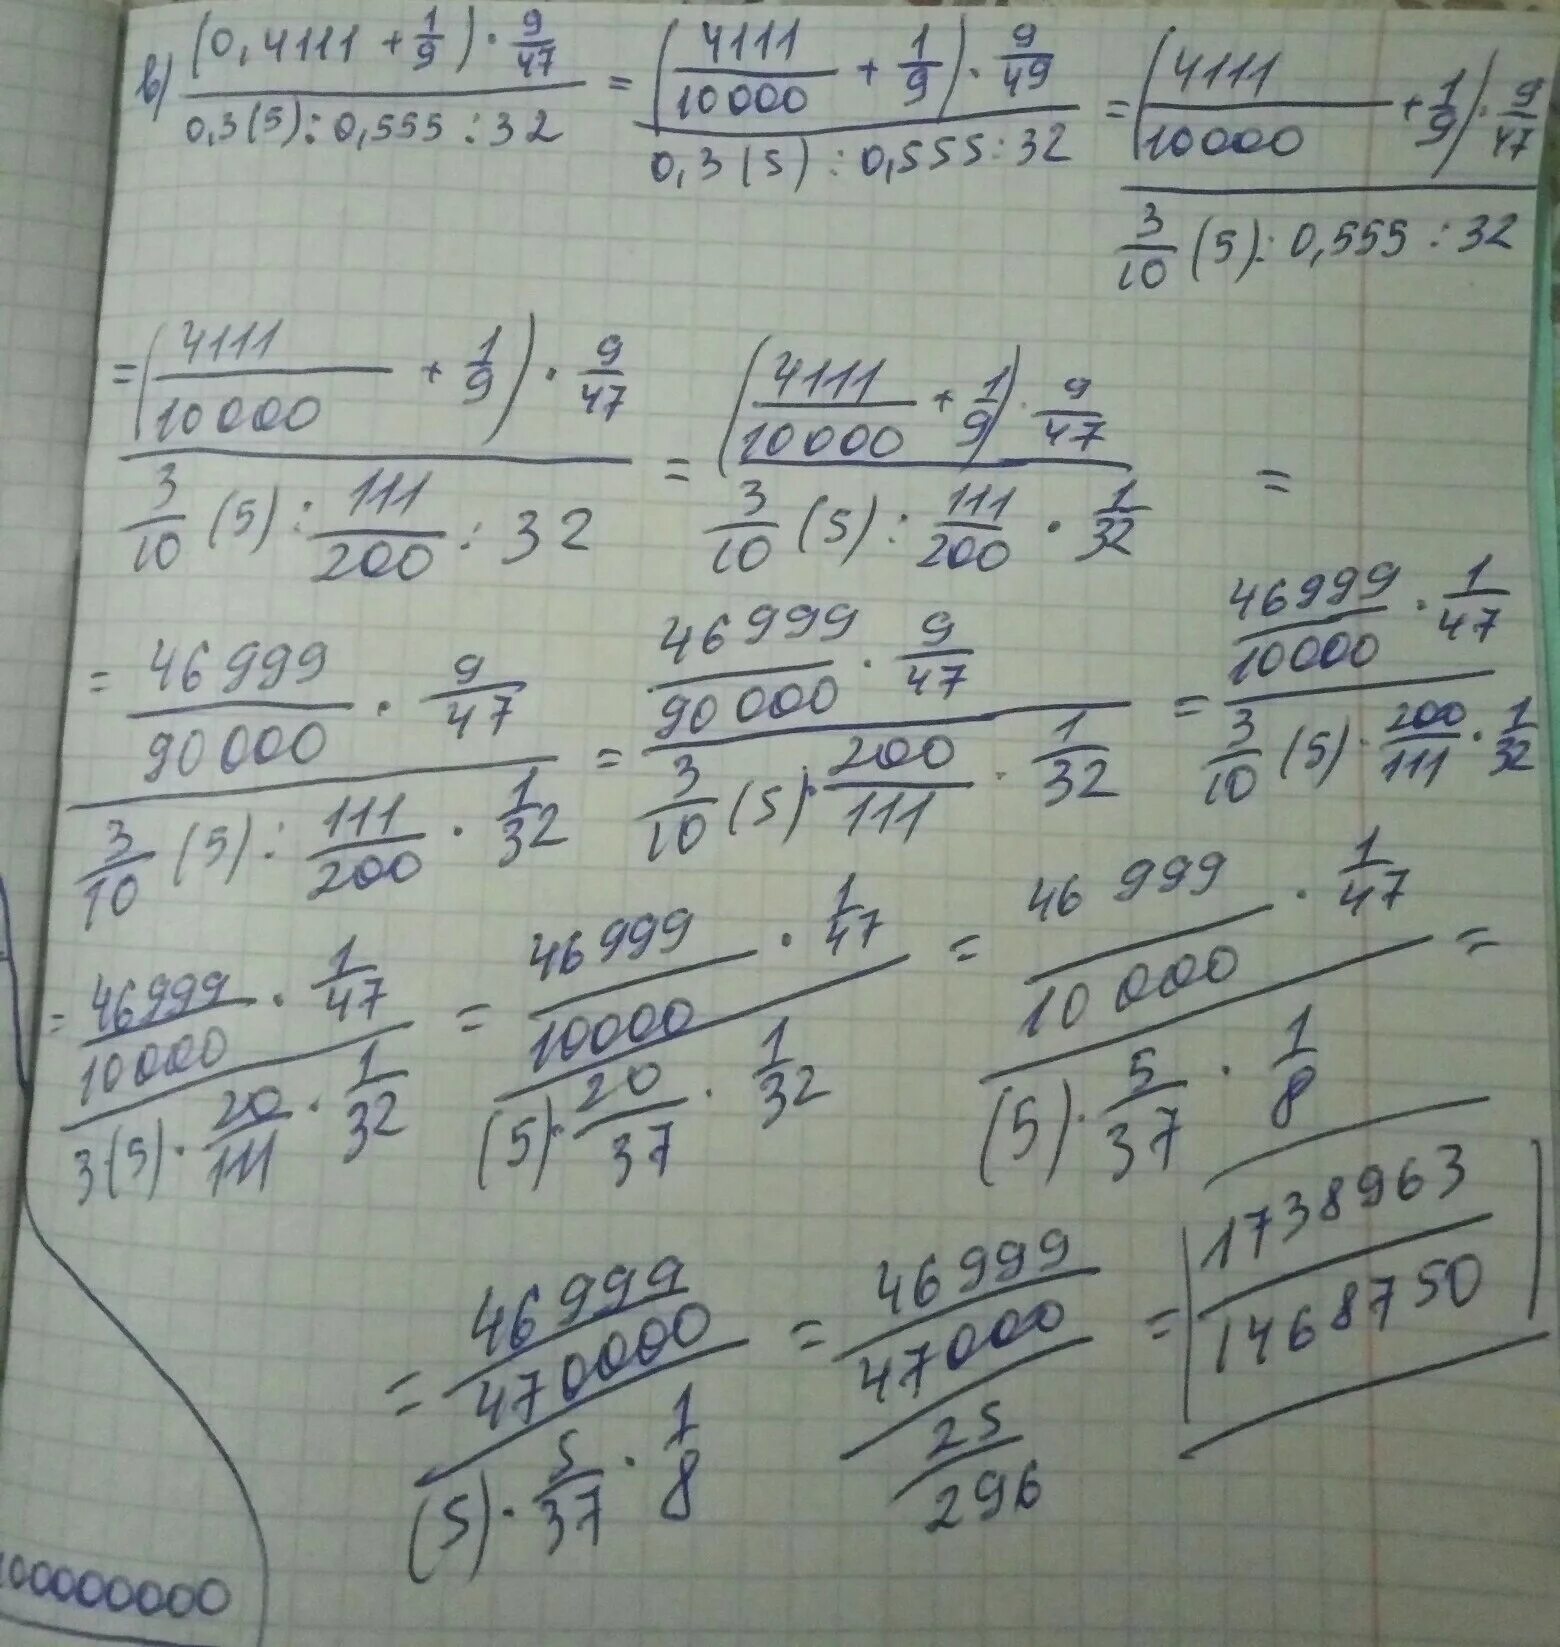 в) (0,4111 + 1/9) · 9/47 / 0,3(5) : 0,555 : 32 = (4111/10000 + 1/9) · 9/49 / 0,3(5) : 0,555 : 32 = (4111/10000 + 1/9) · 9/47 / 3/10 (5) : 0,555 : 32
= (4111/10000 + 1/9) · 9/47 / 3/10 (5) : 111/200 : 32 = (4111/10000 + 1/9) · 9/47 / 3/10 (5) : 111/200 · 1/32 =
= 46999/90000 · 9/47 / 3/10 (5) : 111/200 · 1/32 = 46999/90000 · 9/47 / 3/10 (5) · 200/111 · 1/32 = 46999/10000 · 1/47 / 3/10 (5) · 200/111 · 1/32
= 46999/10000 · 1/47 / 3·(5) · 20/111 · 1/32 = 46999/10000 · 1/47 / (5) · 20/37 · 1/32 = 46999/10000 · 1/47 / (5) · 5/37 · 1/8 =
= 46999/470000 / (5) · 5/37 · 1/8 = 46999/47000 / 25/296 = 1738963/1468750
00000000